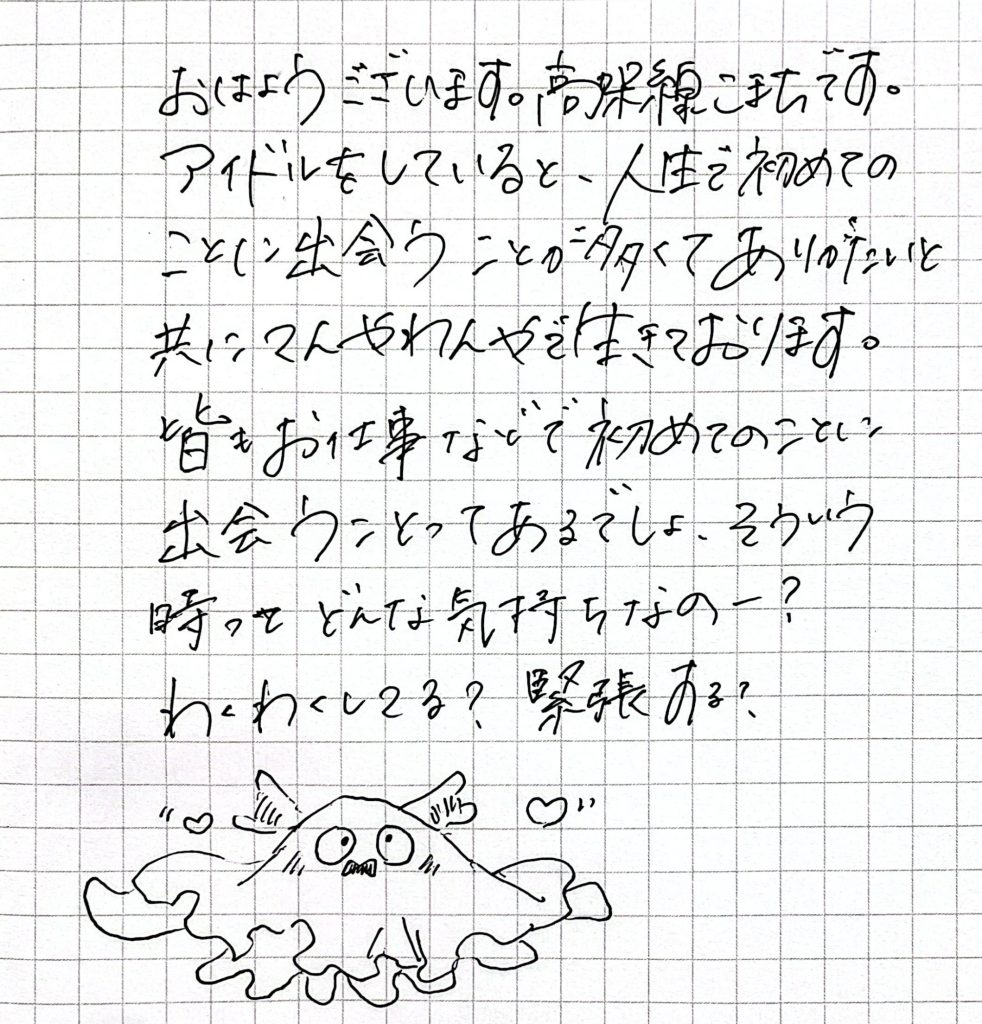 おはようございます。高架線こまちです。
アイドルをしていると、人生で初めての
ことに出会うことが多くてありがたいと
共にてんやわんやで生きております。
皆もお仕事などで初めてのことに
出会うことってあるでしょ、そういう
時って どんな気持ちなのー?
わくわくしてる? 緊張する?